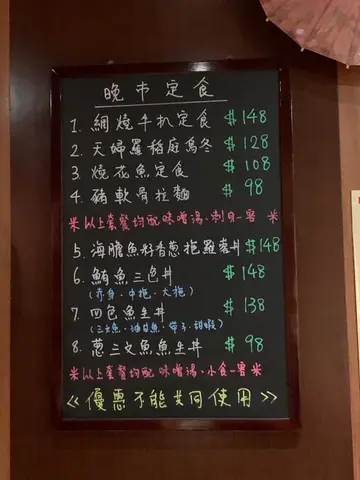 晚市定食
1. 網燒牛扒定食 $148
2. 天婦羅稻庭烏冬 $128
3. 燒花魚定食 $108
4. 豬軟骨拉麵 $98
※以上套餐均配味噌湯.刺身一客※
5. 海膽魚籽香蔥拖羅蓉丼 $148
6. 鮪魚三色丼 $148
(赤身.中拖.大拖)
7. 四色魚生丼 $138
(三文魚.油甘魚.帶子.甜蝦)
8. 蔥三文魚魚生丼 $98
※以上套餐均配味噌湯.小食一客※
《優惠不能共同使用》